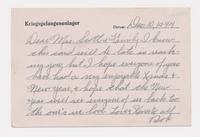 Kriegsgefangenenlager Datum: Dec. 10, 1944
Dear Mrs. Scott & Family, I know
this card will be late in reach-
ing you but I hope everyone of you
have had a very enjoyable Xmas &
New Year, & hope that the New
Year will see everyone of us back to
the one's we love. Love
Bob